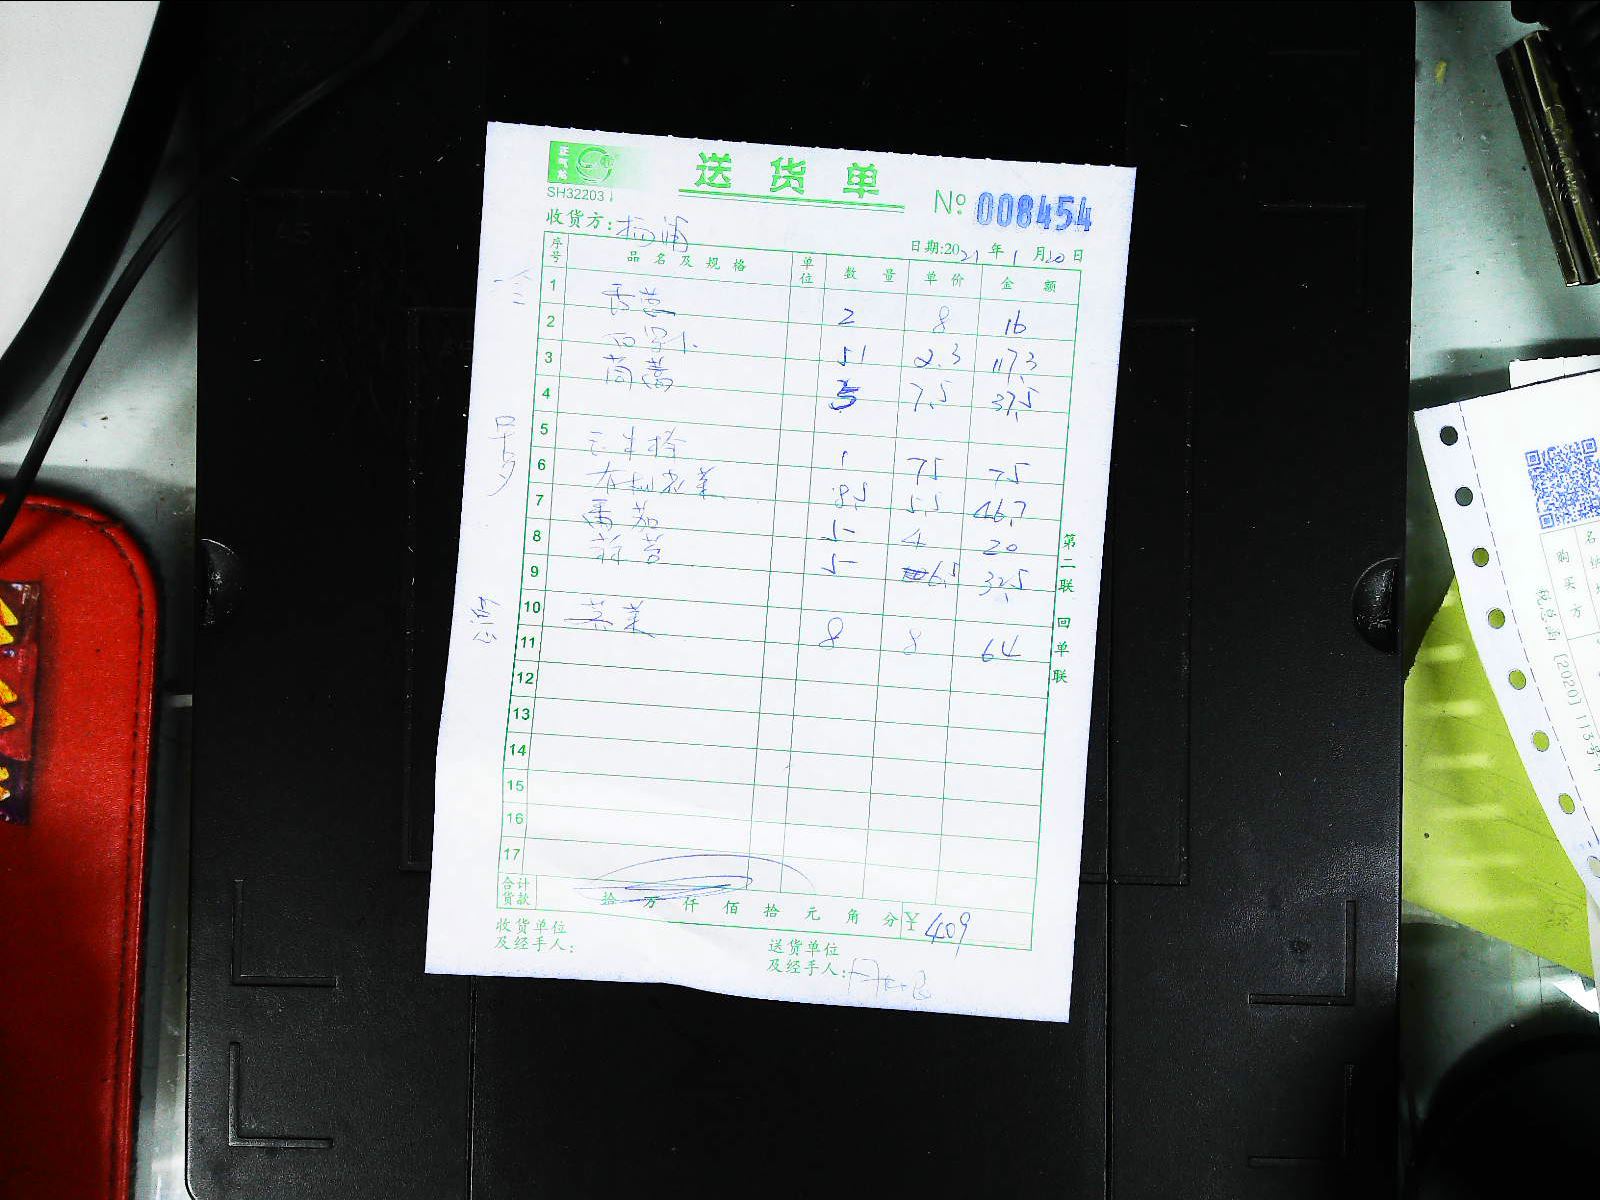 送货单
SH32203
No 008454
收货方: 杨浦
日期:2021年1月20日
序号 品名及规格 单位 数量 单价 金额
1 香葱 2 8 16
2 51 2.3 117.3
3 茼蒿 5 7.5 37.5
4
5 1 75 75
6 8.5 5.5 46.7
7 番茄 5 4 20
8 5 6.5 32.5
9
10 8 8 64
11
12
13
14
15
16
17
合计货款 拾 万 仟 佰 拾 元 角 分 ¥ 409
收货单位及经手人:
送货单位及经手人:
第二联 回单联
名
购买方
税总函[2020]113号